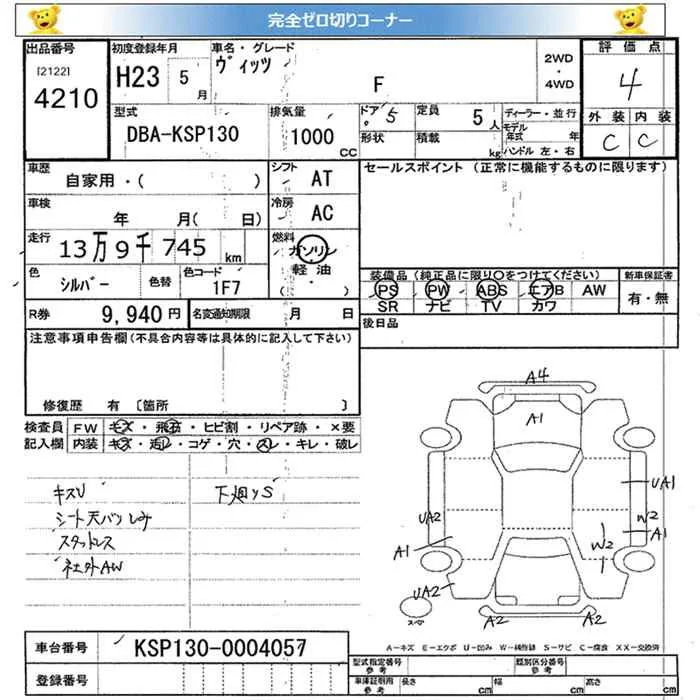 完全ゼロ切りコーナー
出品番号
[2122]
4210
初度登録年月
H23 5月
車名・グレード
ヴィッツ
F
2WD
・
4WD
評価点
4
型式
DBA-KSP130
排気量
1000 CC
ドア 5
形状
定員 5人
積載 kg
ディーラー・並行
モデル年式 年
ハンドル 左・右
外装 内装
C C
車歴
自家用・( )
シフト
AT
車検
年 月( 日)
冷房
AC
走行
13万9千745km
燃料
ガソリン
軽油
( ・ )
色
シルバー
色替
色コード
1F7
R券 9,940円
名変通知期限 月 日
セールスポイント (正常に機能するものに限ります)
装備品(純正品に限り○をつけてください)
PS PW ABS エアB AW
SR ナビ TV カワ
新車保証書
有・無
後日品
注意事項申告欄(不具合内容等は具体的に記入して下さい)
修復歴 有 〔箇所 〕
検査員
記入欄
FW キズ・飛石・ヒビ割・リペア跡・×要
内装 キズ・汚レ・コゲ・穴・スレ・キレ・破レ
キズU
シート天バリしみ
スタットレス
社外AW
下廻りS
A4
A1
UA1
UA2
W2
A1
A1
W2
UA2
A2
A2
スペア
A-キズ E-エクボ U-凹み W-補修跡 S-サビ C-腐食 XX-交換済
車台番号 KSP130-0004057
登録番号
型式指定番号
参考
類別区分番号
参考
車庫証明用
参考
長さ cm 幅 cm 高さ cm